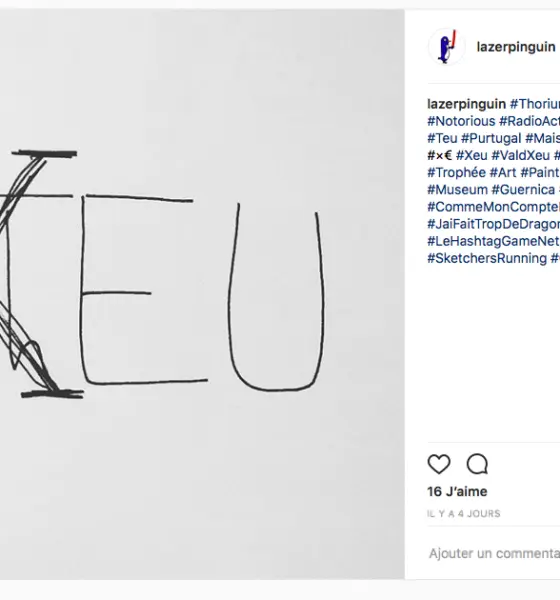 XEU
lazerpinguin
lazerpinguin #Thoriu
#Notorious #RadioAct
#Teu #Purtugal #Mais
#×€ #Xeu #ValdXeu #
#Trophée #Art #Paint
#Museum #Guernica
#CommeMonCompte
#JaiFaitTropDeDragon
#LeHashtagGameNet
#SketchersRunning #
16 J’aime
IL Y A 4 JOURS
Ajouter un commenta